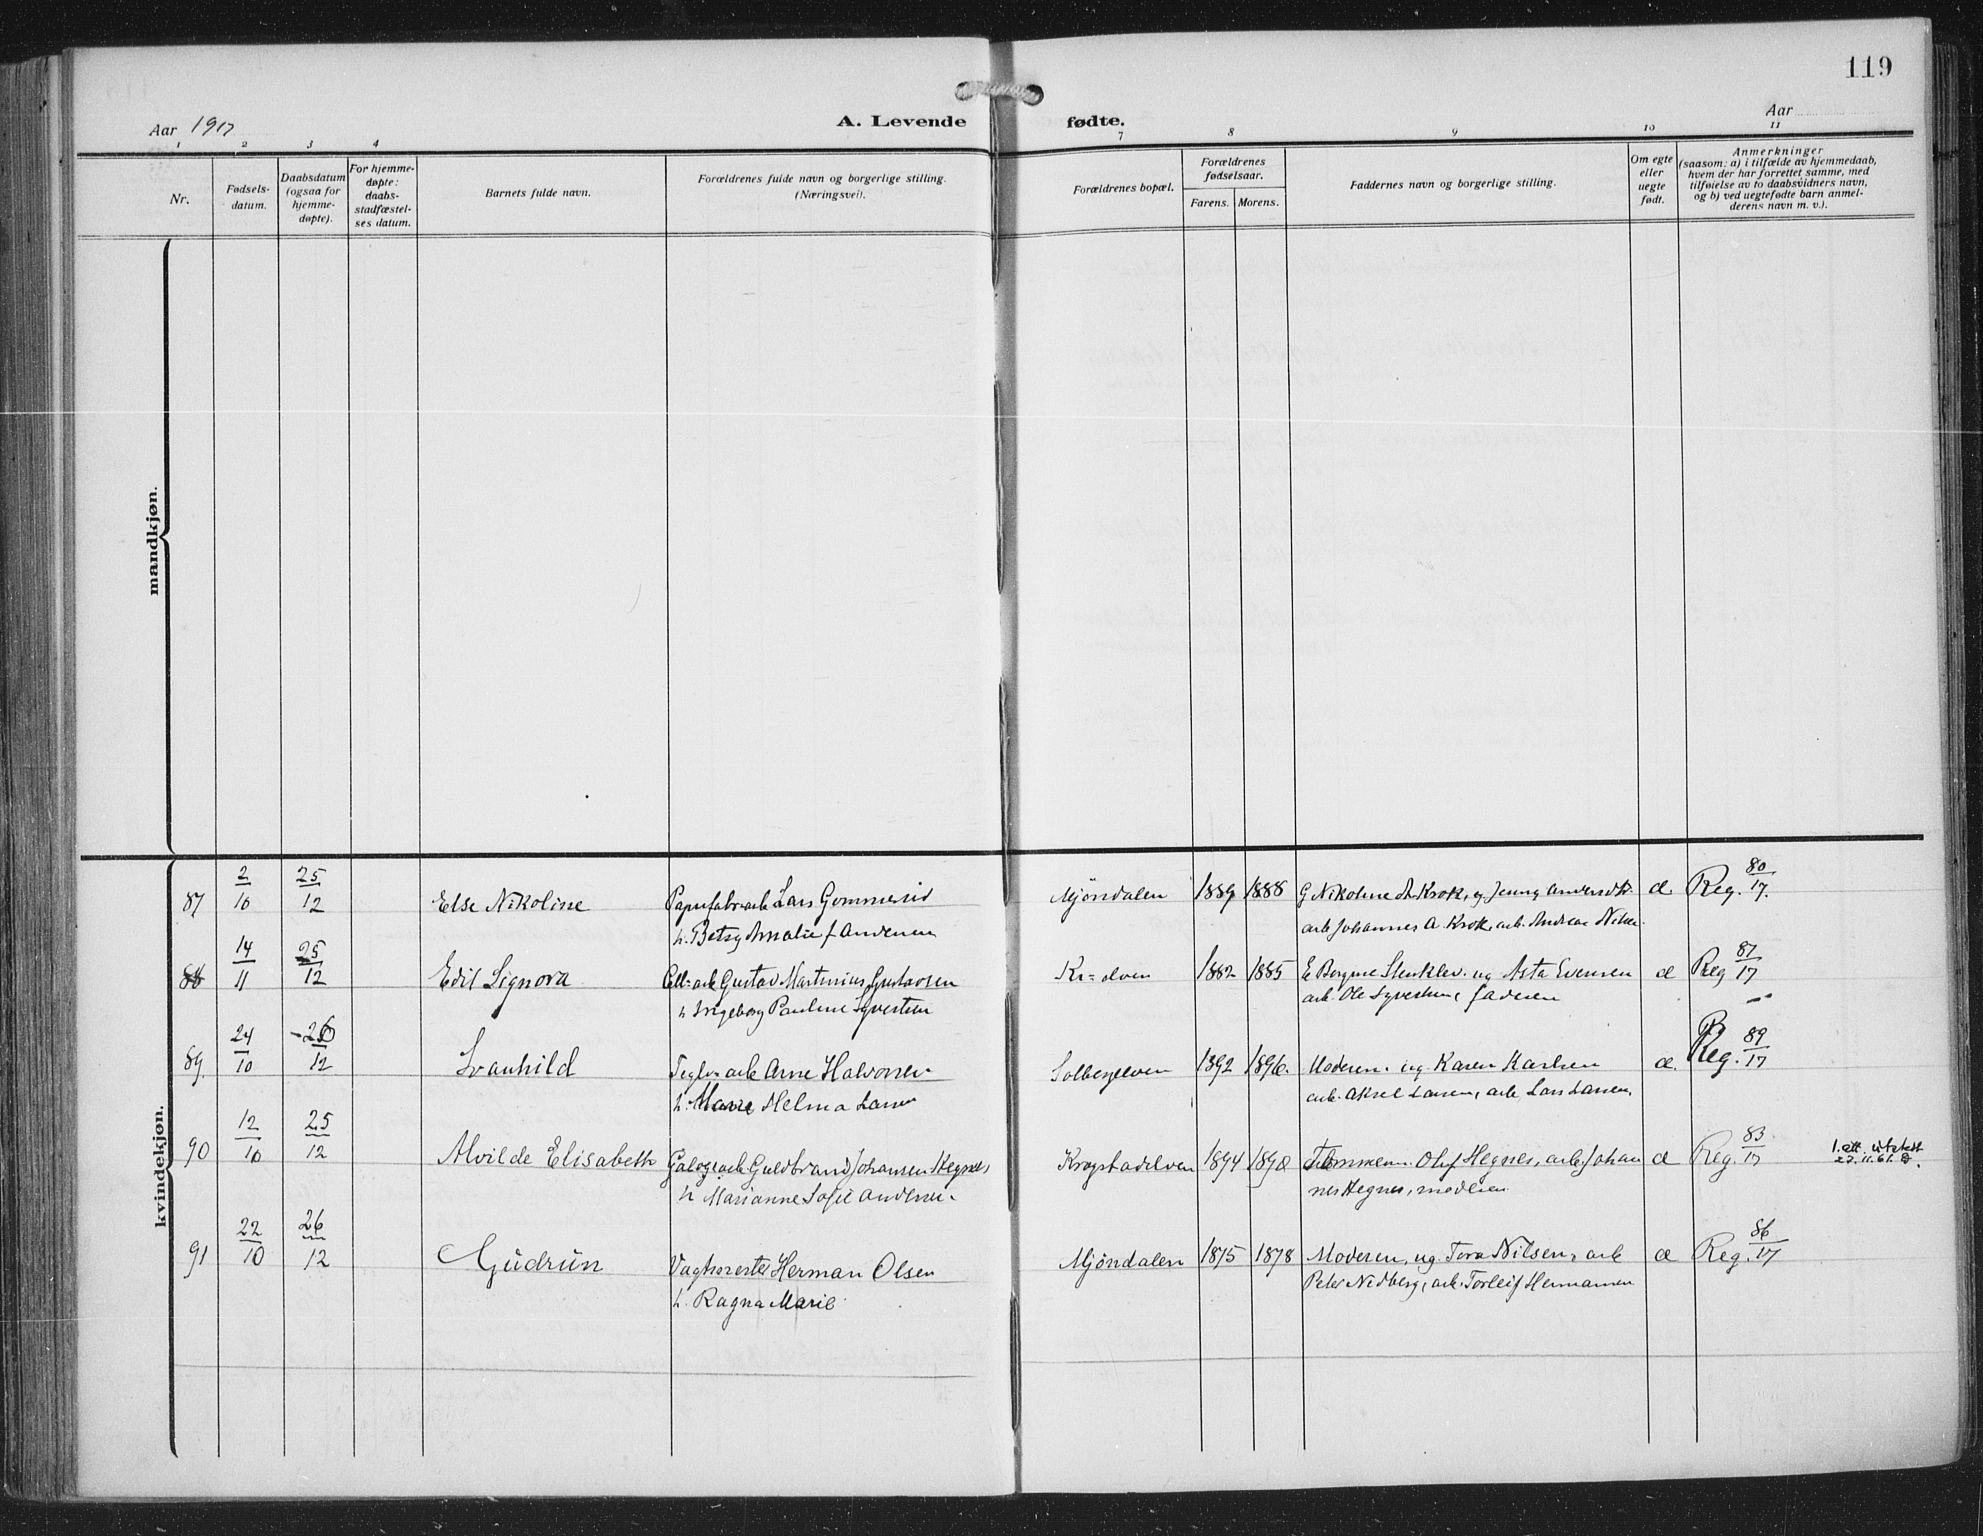 119
Aar 1917
A. Levende fødte.
Aar
1 2 3 4 7 8 9 10 11
Nr.
Fødsels-
datum.
Daabsdatum
(ogsaa for
hjemme-
døpte).
For hjemme-
døpte:
daabs-
stadfæstel-
ses datum.
Barnets fulde navn.
Forældrenes fulde navn og borgerlige stilling.
(Næringsvei).
Forældrenes bopæl.
Forældrenes
fødselsaar.
Farens. Morens.
Faddernes navn og borgerlige stilling.
Om egte
eller
uegte
født.
Anmerkninger
(saasom: a) i tilfælde av hjemmedaab,
hvem der har forrettet samme, med
tilføielse av to daabsvidners navn,
og b) ved uegtefødte barn anmel-
derens navn m. v.).
mandkjøn.
kvindekjøn.
87 2/10 25/12 Else Nikoline
Papirfabr.arb. Lars Gommerud
h. Betzy Amalie f Andersen
Mjöndalen 1889 1888
G Nikoline A. Krok, og Jenny
arb Johannes A. Krok, arb. Andreas Nilsen
æ Reg. 80/17.
88 14/11 25/12 Edit Signora
Cell-arb Gustav Martinius Gustavsen
h Ingeborg Pauline Syversten
Kr=elven 1882 1885
og Asta Evensen
arb. Ole Syversten, faderen
æ Reg 87/17
89. 24/10 26/12 Svanhild
Teglv-arb Arne Halvorsen
h. Marie Helma Larsen
Solbergelven 1892 1896.
Moderen og Karen Karlsen
arb. Aksel Larsen, arb Lars Larsen.
æ. Reg. 89/17
90 12/10 25/12 Alvilde Elisabeth
Guldbrand Johansen Hegnes
h Marianne Sofie Andersen.
Krogstadelven 1894 1898
Tømmerm. Olaf Hegnes, arb Johan
nes Hegnes, moderen
æ Reg. 83/17
1. att. utstedt
27.11.61.
91 22/10 26/12 Gudrun
Vagtmester Herman Olsen
h. Ragna Marie
Mjöndalen 1875 1878
Moderen, og Tora Nilsen, arb
Peter Nedberg, arb. Torleif Hermansen
æ Reg. 86/17